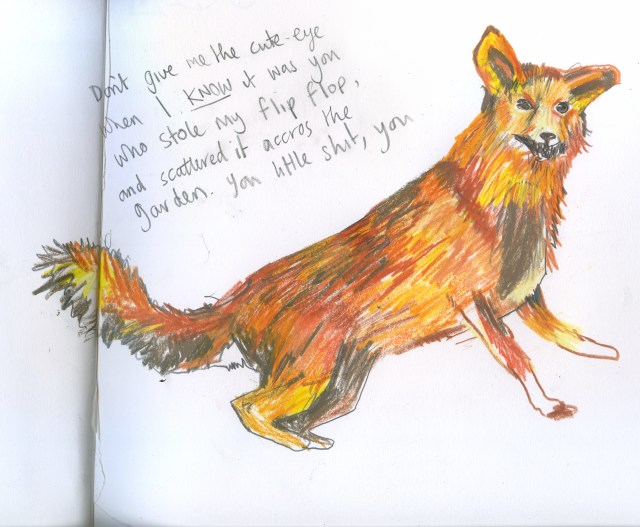 Don't give me the cute-eye
when I KNOW it was you
who stole my flip flop,
and scattured it accros the
garden. You little shit, you